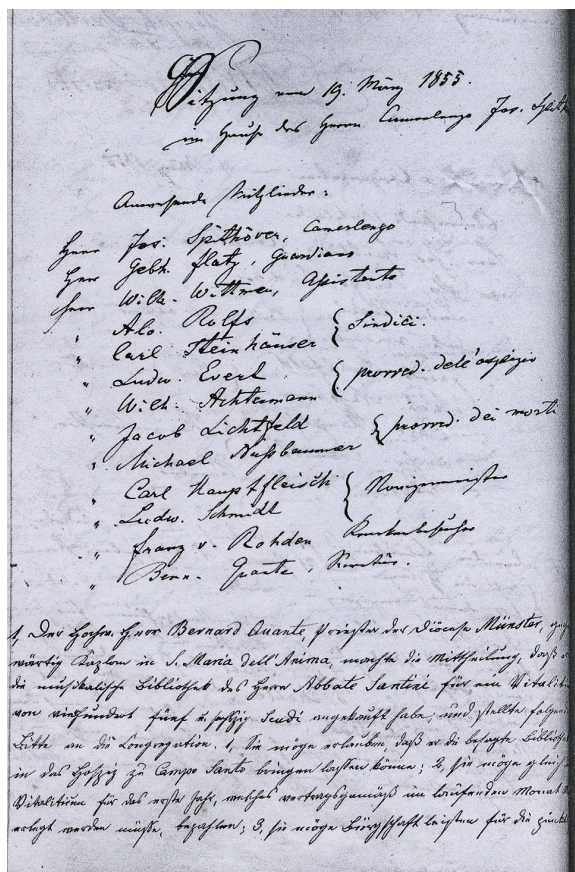 Sitzung vom 19. März 1855.
im Hause des Herrn Camerlengo Jos. Spith
Anwesende Mitglieder:
Herr Jos. Spithöver, Camerlengo
Herr Gebh. Flatz, Guardiano
Herr Wilh. Wittmer, Assistente
" Alo. Rolfs } Sindici.
" Carl Steinhäuser
" Ludw. Everl } provved. dell'ospizio
" Wilh. Achtermann
" Jacob Lichtfeld } provved. dei morti
" Michael Nussbaumer
" Carl Hauptfleisch } Novizenmeister
" Ludw. Schmidt
" Franz v. Rohden Krankenbesucher
" Bern. Quante, Secretär.
1, Der Hochw. Herr Bernard Quante, Priester der Diöcese Münster, gegen
wärtig Kaplan in S. Maria dell'Anima, machte die Mittheilung, daß er
die musikalische Bibliothek des Herrn Abbate Santini für ein Vitalitium
von vierhundert fünf u. sechzig Scudi angekauft habe, und stellte folgende
Bitte an die Congregation. 1, Sie möge erlauben, daß er die besagte Bibliothek
in das Hospiz zu Campo Santo bringen lassen könne; 2, sie möge gleich
Vitalitium für das erste Jahr, welches vertragsgemäß im laufenden Monat
erlegt werden müsse, bezahlen; 3, sie möge Bürgschaft leisten für die pünkt